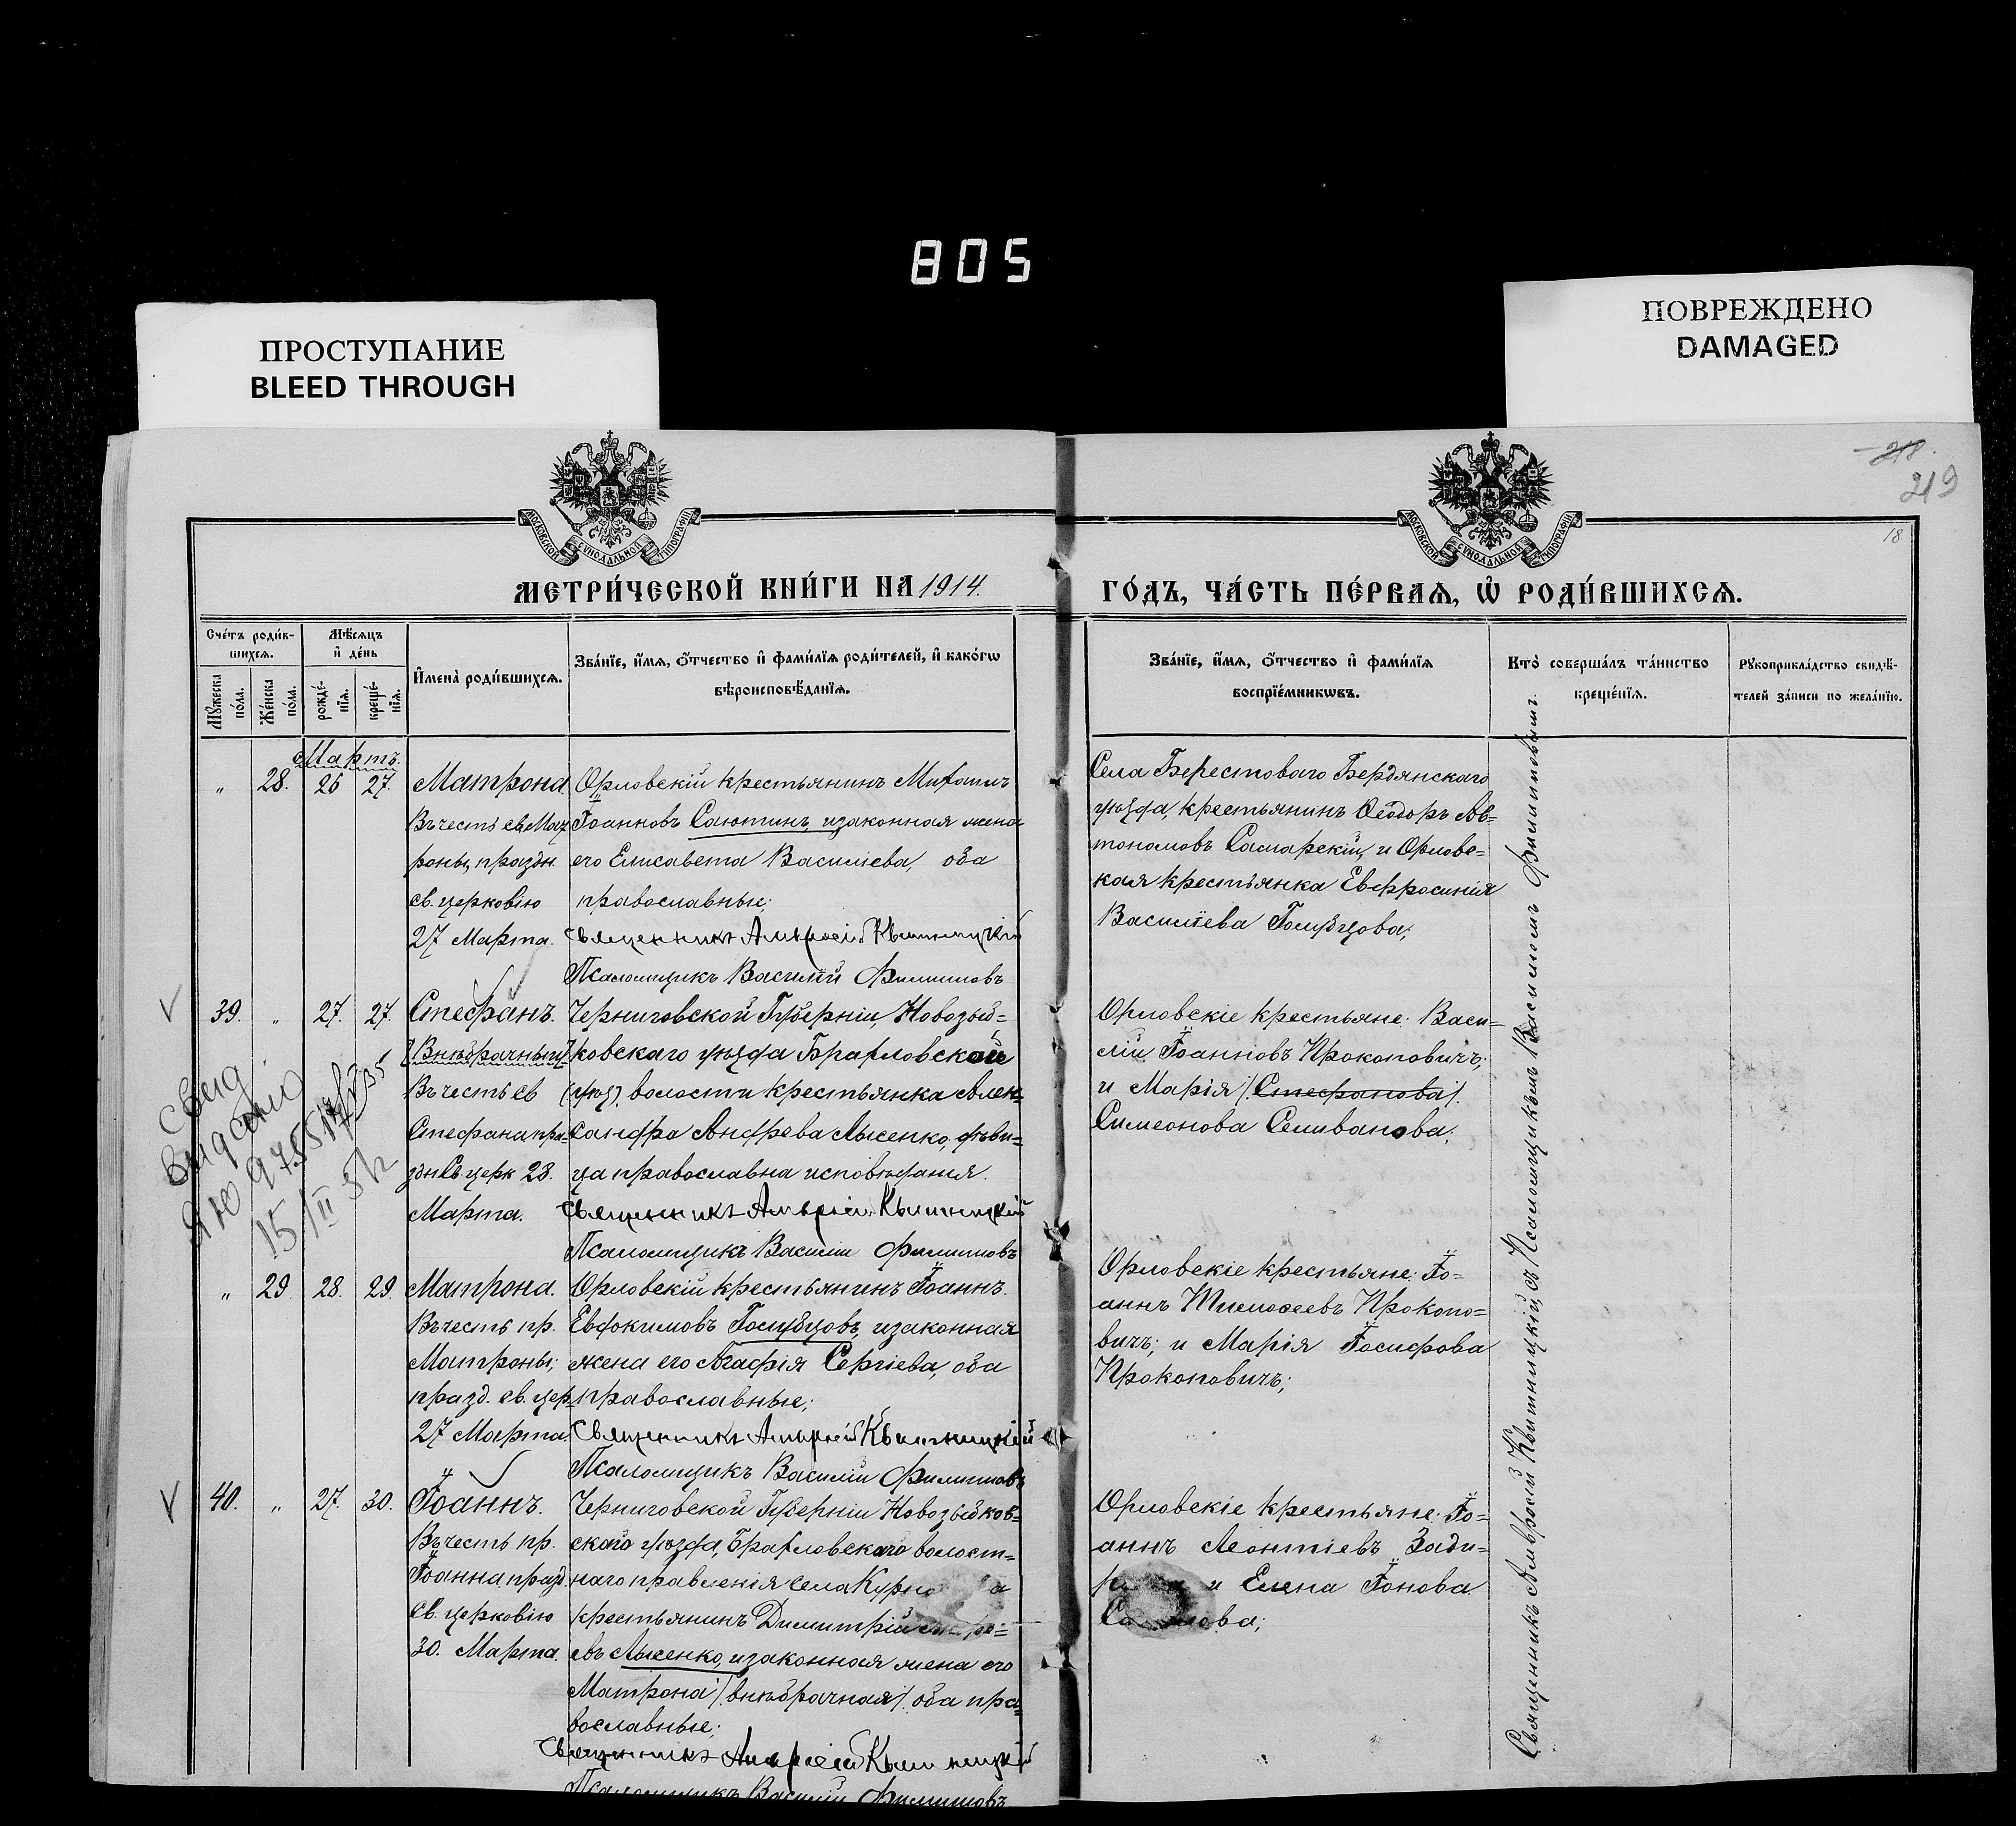 805
ПРОСТУПАНИЕ
BLEED THROUGH
ПОВРЕЖДЕНО
DAMAGED
218.
219
18.
МОСКОВСКОЙ СѴНОДАЛЬНОЙ ТИПОГРАФІИ
МОСКОВСКОЙ СѴНОДАЛЬНОЙ ТИПОГРАФІИ
МЕТРИ́ЧЕСКОЙ КНИ́ГИ НА 1914. ГО́ДЪ, ЧА́СТЬ ПЕ́РВАѦ, Ѡ҆ РОДИ́ВШИХСѦ.
Сче́тъ роди́в-
шихсѧ.
Мꙋ́жеска по́ла.
Же́нска по́ла.
Мѣ́сѧцъ
и҆ де́нь
рожде́-
нїѧ.
креще́-
нїѧ.
И҆мена̀ роди́вшихсѧ.
Зва́нїе, и҆́мѧ, ѻ҆́тчество и҆ фами́лїѧ роди́телей, и҆ како́гѡ
вѣроисповѣ́данїѧ.
Зва́нїе, и҆́мѧ, ѻ҆́тчество и҆ фами́лїѧ
воспрїе́мникѡвъ.
Кто̀ соверша́лъ та́инство
креще́нїѧ.
Рꙋкоприкла́дство свидѣ́-
телей за́писи по жела́нїю.
Мартъ.
„ 28. 26 27. Матрона.
Въ честь св. Мат
роны, праздн.
св. церковію
27 Марта.
Орловскій крестьянинъ
Іоанновъ Саютинъ, и законная жена
его Елисавета Василіева, оба
православные;
Священникъ Амвросій Квитницкій
Псаломщикъ Василій Филипповъ
Села Берестоваго Бердянскаго
уѣзда, крестьянинъ Ѳеодоръ Ав=
тономовъ Самарскій, и Орловс=
кая крестьянка Евфросинія
Василіева Голубцова;
39. „ 27. 27. Стефанъ.
[Внѣбрачный]
Въ честь св
Стефана пра=
здн. св. церк 28.
Марта.
Черниговской Губерніи, Новозыб=
ковскаго уѣзда Брахловской
(уѣз). волости крестьянка Алек=
сандра Андрева Лысенко, дѣви=
ца православна исповѣданія.
Священникъ Амвросій Квитницкій
Псаломщикъ Василій Филипповъ
Орловскіе крестьяне: Васи=
лій Іоанновъ Прокоповичъ;
и Марія /Стефанова/.
Симеонова Селиванова.
свид
выдано
ЯЮ 975517
15/II 35 г
„ 29. 28. 29. Матрона.
Въ честь пр.
Матроны;
празд. св. цер.
27 Марта.
Орловскій крестьянинъ Іоаннъ
Евдокимовъ Голубцовъ, и законная
жена его Агафія Сергіева, оба
православные;
Священникъ Амвросій Квитницкій
Псаломщикъ Василій Филипповъ
Орловскіе крестьяне: Іо=
аннъ Тимоѳеевъ Прокопо=
вичъ; и Марія Іосифова
Прокоповичъ;
40. „ 27. 30. Іоаннъ.
Въ честь пр.
Іоанна, празд.
св. церковію
30. Марта.
Черниговской Губерніи Новозыбков=
скаго уѣзда, Брахловскаго волост=
наго правленія села
крестьянинъ Димитрій
евъ Лысенко, и законная жена его
Матрона /внѣбрачная/ оба пра=
вославные;
Священникъ Амвросій Квитницкій
Псаломщикъ Василій Филипповъ
Орловскіе крестьяне: Іо=
аннъ Леонтіевъ
и Елена Іонова
Священникъ Амвросій Квитницкій, съ Псаломщикомъ Василіемъ Филипповымъ.